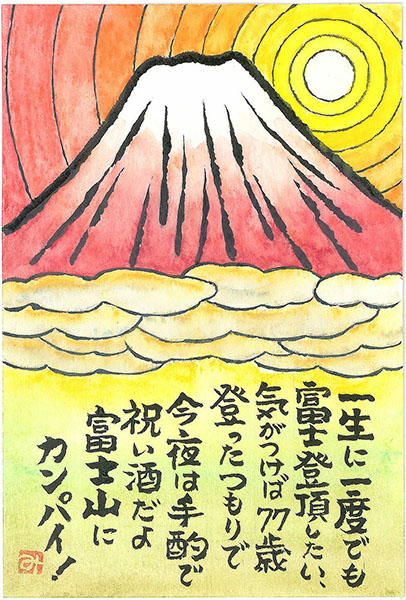 一生に一度でも
富士登頂したい、
気がつけば77歳
登ったつもりで
今夜は手酌で
祝い酒だよ
富士山に
カンパイ!
み